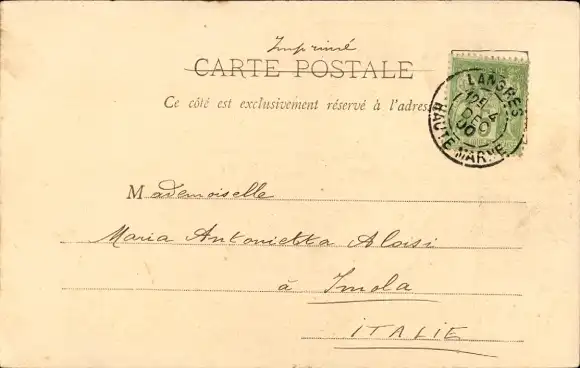 Imprimé
CARTE POSTALE
Ce côté est exclusivement réservé à l'adresse
LANGRES
4
DEC
00
HAUTE-MARNE
5
Mademoiselle
Maria Antonietta Aloisi
à Imola
ITALIE